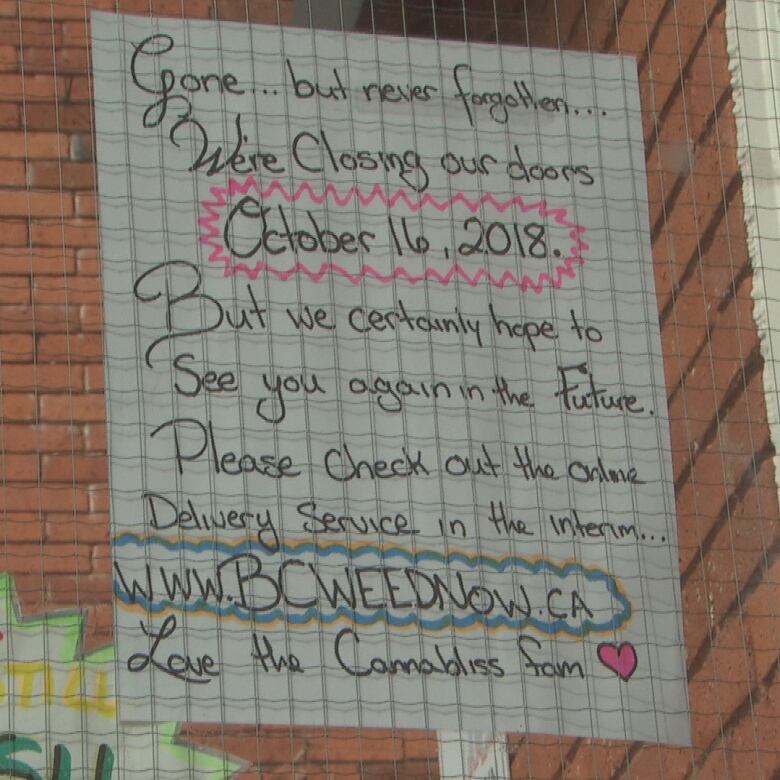 Gone... but never forgotten...
We're Closing our doors
October 16, 2018.
But we certainly hope to
See you again in the Future.
Please Check out the online
Delivery Service in the interim...
WWW.BCWEEDNOW.CA
Love the Cannabliss fam